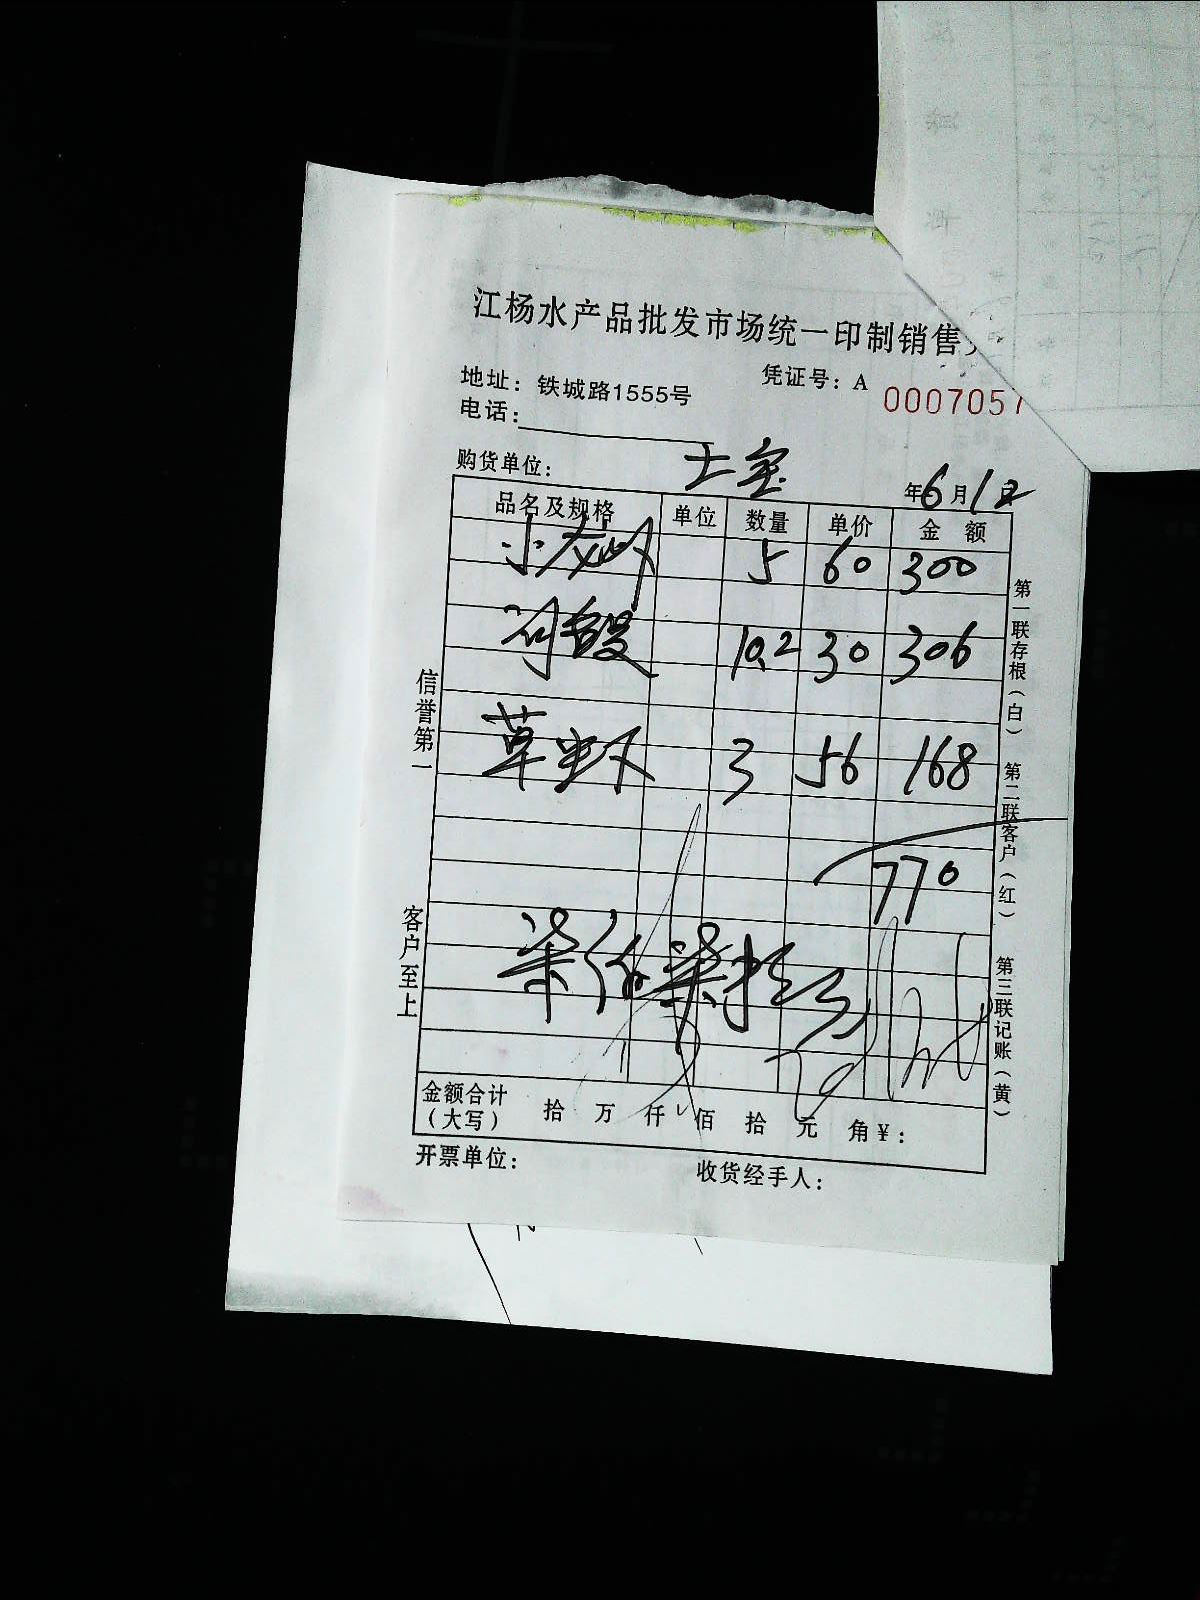 江杨水产品批发市场统一印制销售
地址：铁城路1555号
凭证号：A 0007057
电话：
购货单位：
年6月12日
品名及规格 单位 数量 单价 金额
小龙虾 5 60 300
河鳗 10.2 30 306
草虾 3 56 168
770
柒佰柒拾元
金额合计（大写） 拾 万 仟 佰 拾 元 角 ¥：
开票单位： 收货经手人：
信誉第一
客户至上
第一联存根（白）
第二联客户（红）
第三联记账（黄）